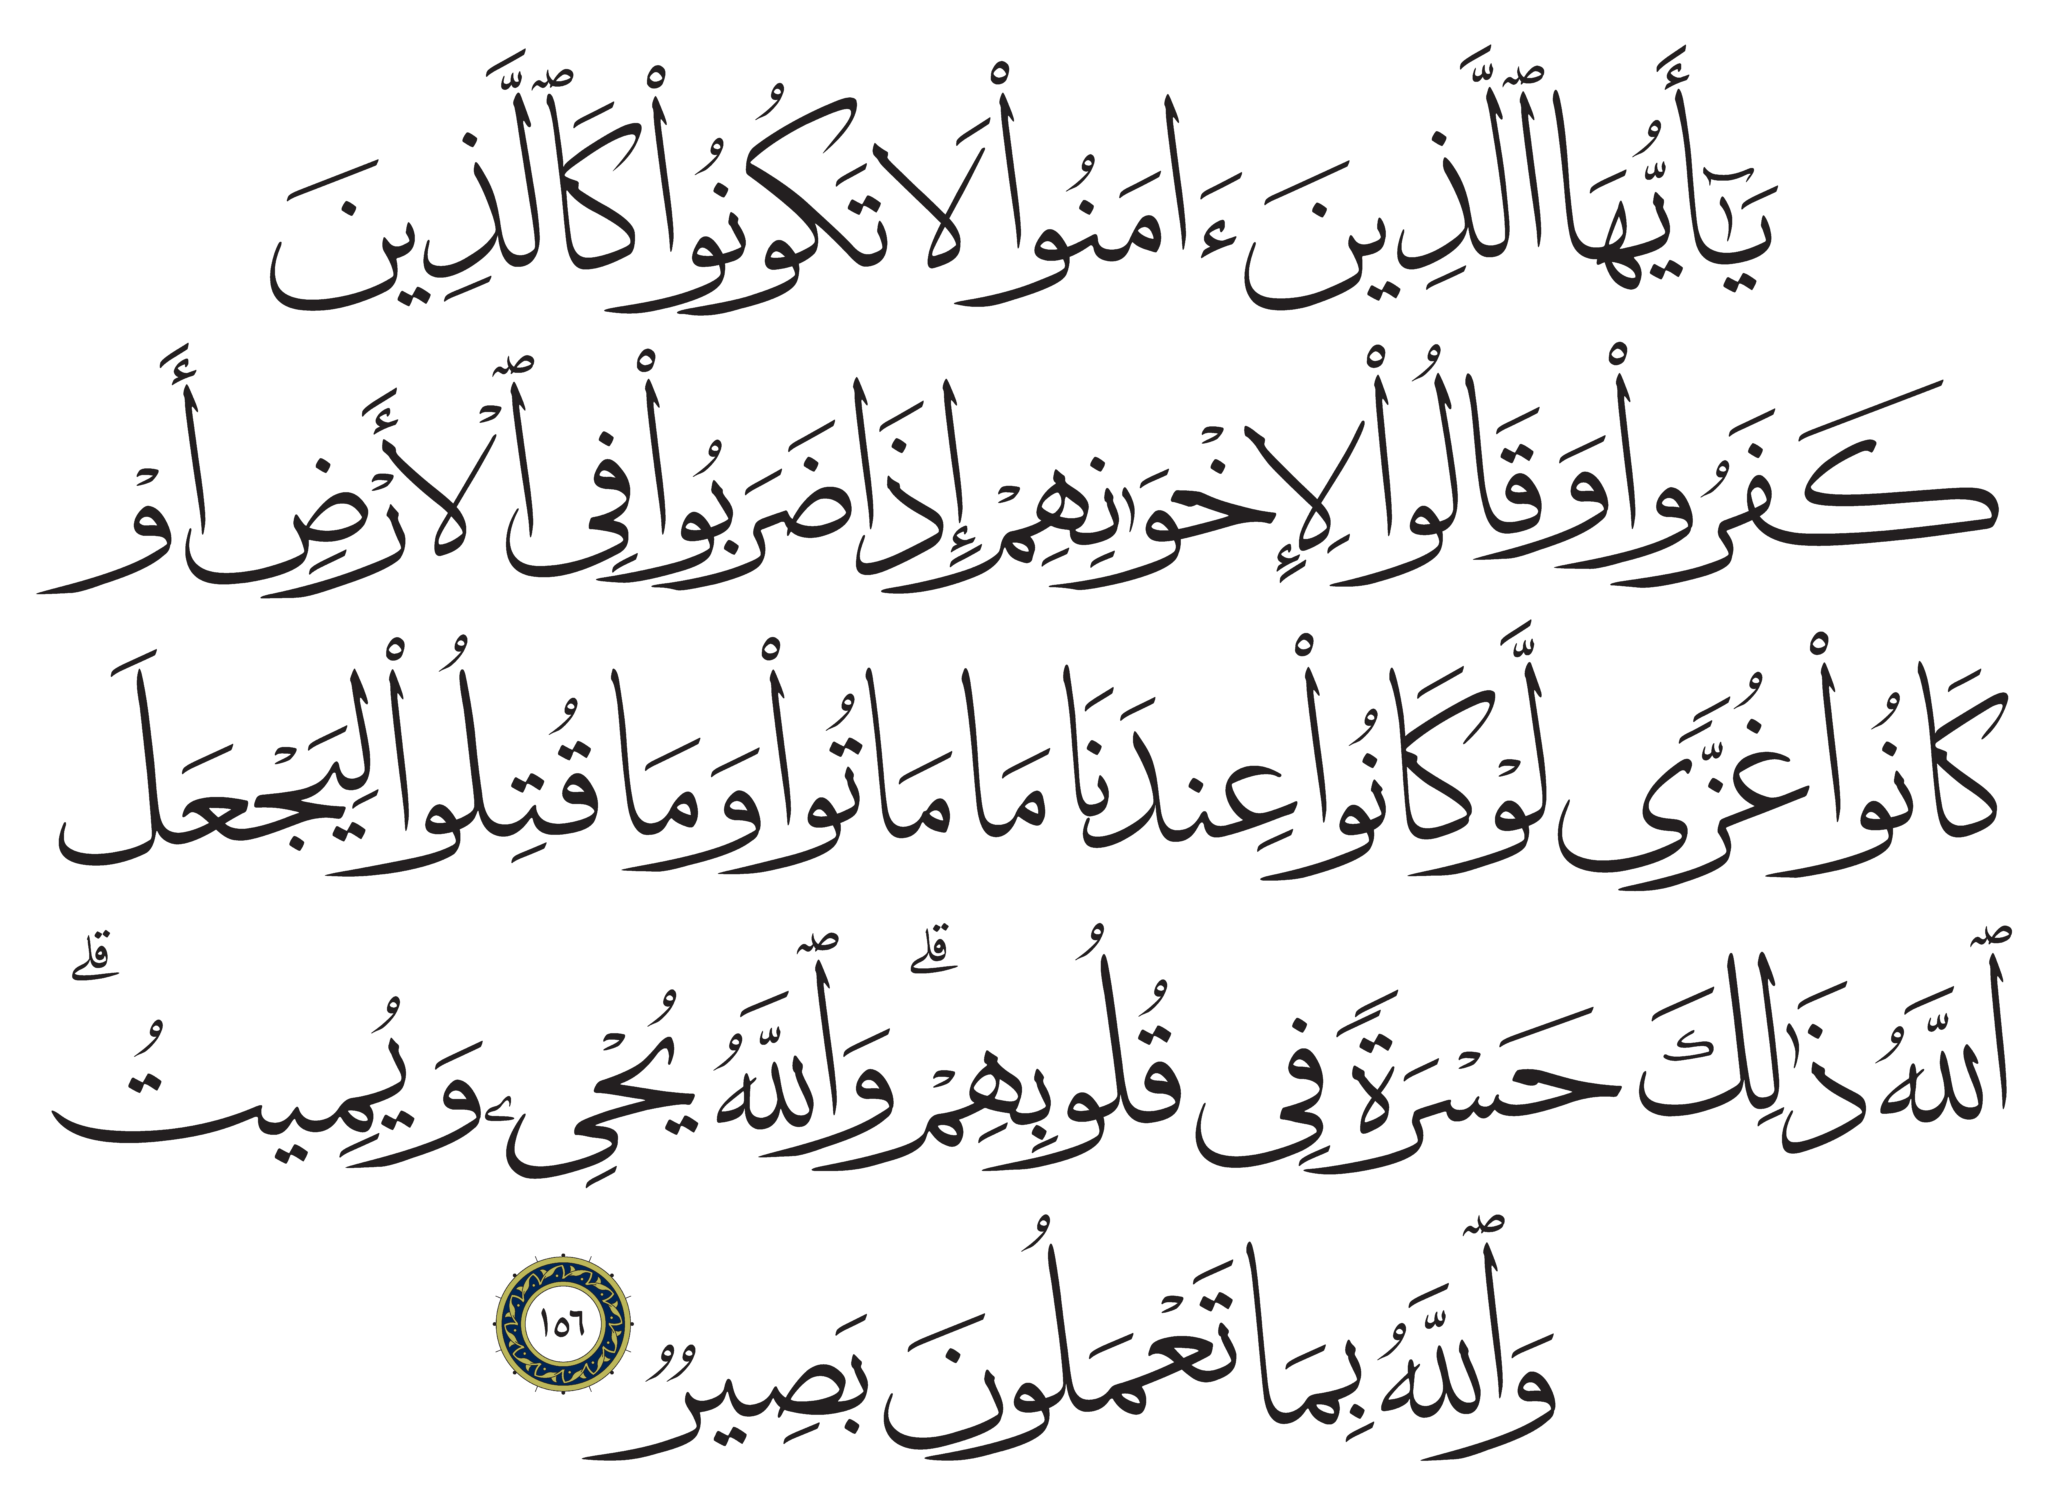 يَـٰٓأَيُّهَا ٱلَّذِينَ ءَامَنُوا۟ لَا تَكُونُوا۟ كَٱلَّذِينَ
كَفَرُوا۟ وَقَالُوا۟ لِإِخْوَٰنِهِمْ إِذَا ضَرَبُوا۟ فِى ٱلْأَرْضِ أَوْ
كَانُوا۟ غُزًّى لَّوْ كَانُوا۟ عِندَنَا مَا مَاتُوا۟ وَمَا قُتِلُوا۟ لِيَجْعَلَ
ٱللَّهُ ذَٰلِكَ حَسْرَةً فِى قُلُوبِهِمْ ۗ وَٱللَّهُ يُحْىِۦ وَيُمِيتُ ۗ
وَٱللَّهُ بِمَا تَعْمَلُونَ بَصِيرٌ ١٥٦